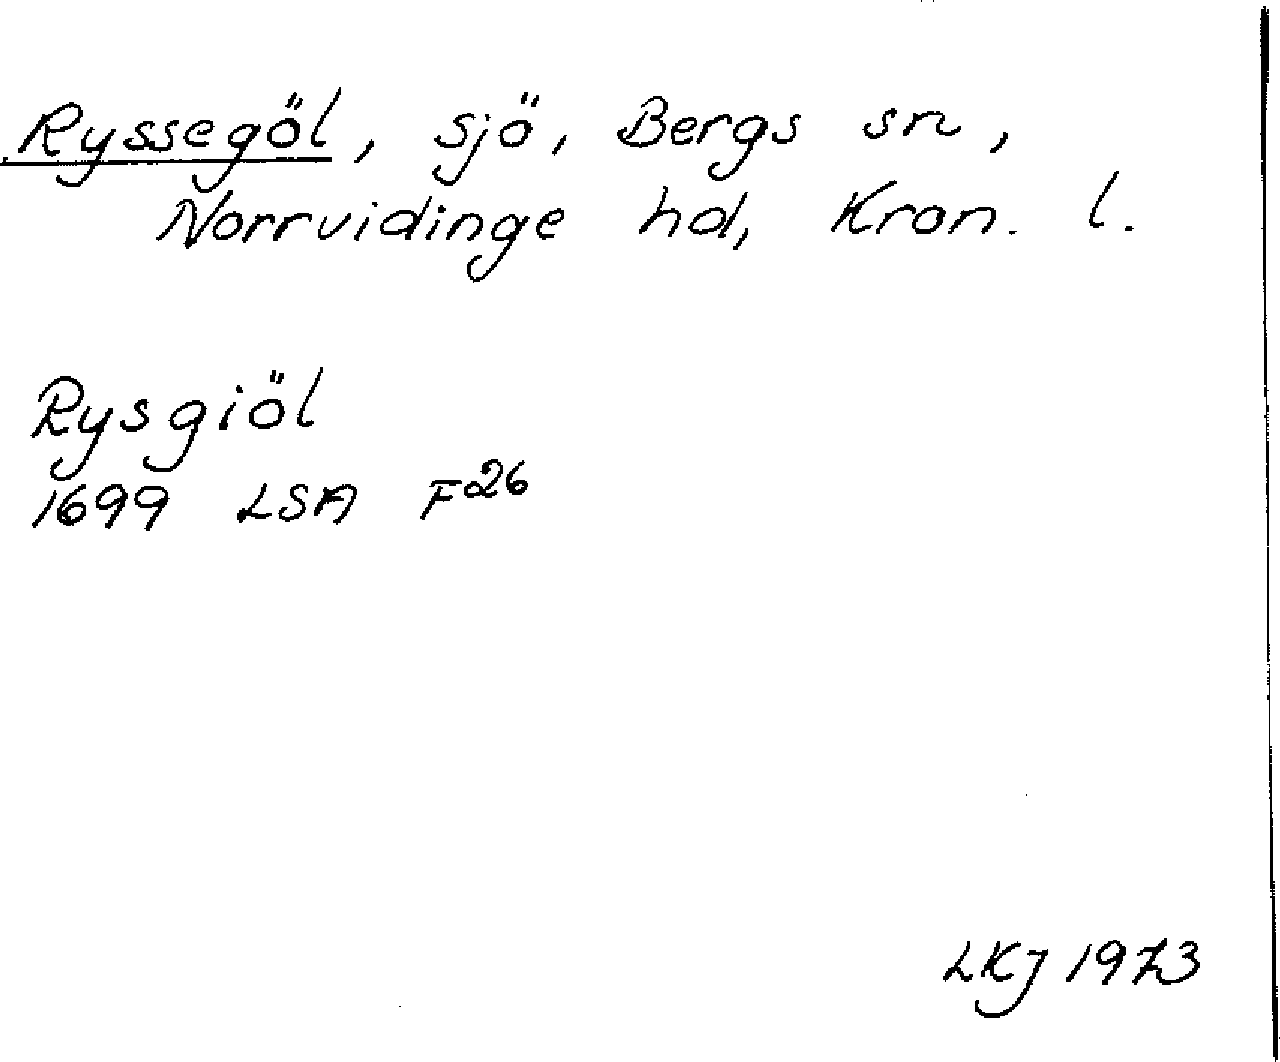 Ryssegöl, sjö, Bergs sn,
Norrvidinge hd, Kron. l.
Rysgiöl
1699 LSA F26
LKJ 1973